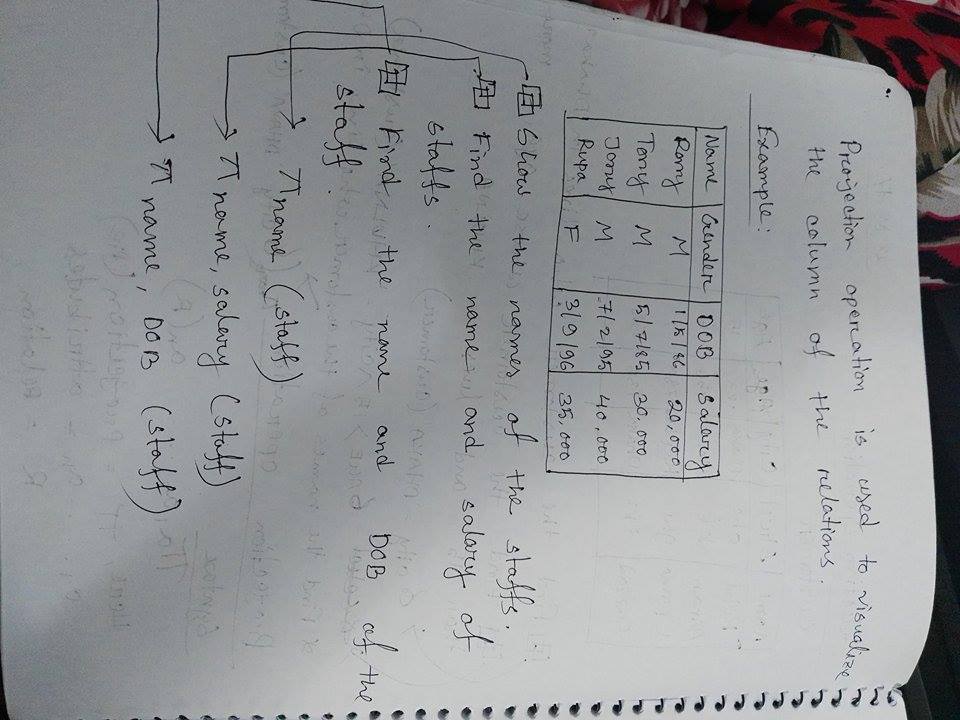 Projection operation is used to visualize
the column of the relations.
Example:
Name Gender DOB Salary
Romy M 20,000
Tomy M 5/7/85 30,000
Jony M 7/2/95 40,000
Rupa F 3/9/96 35,000
Show the names of the staffs.
Find the name and salary of
staffs.
Find the name and DOB of the
staff.
π name (staff)
π name, salary (staff)
π name, DOB (staff)